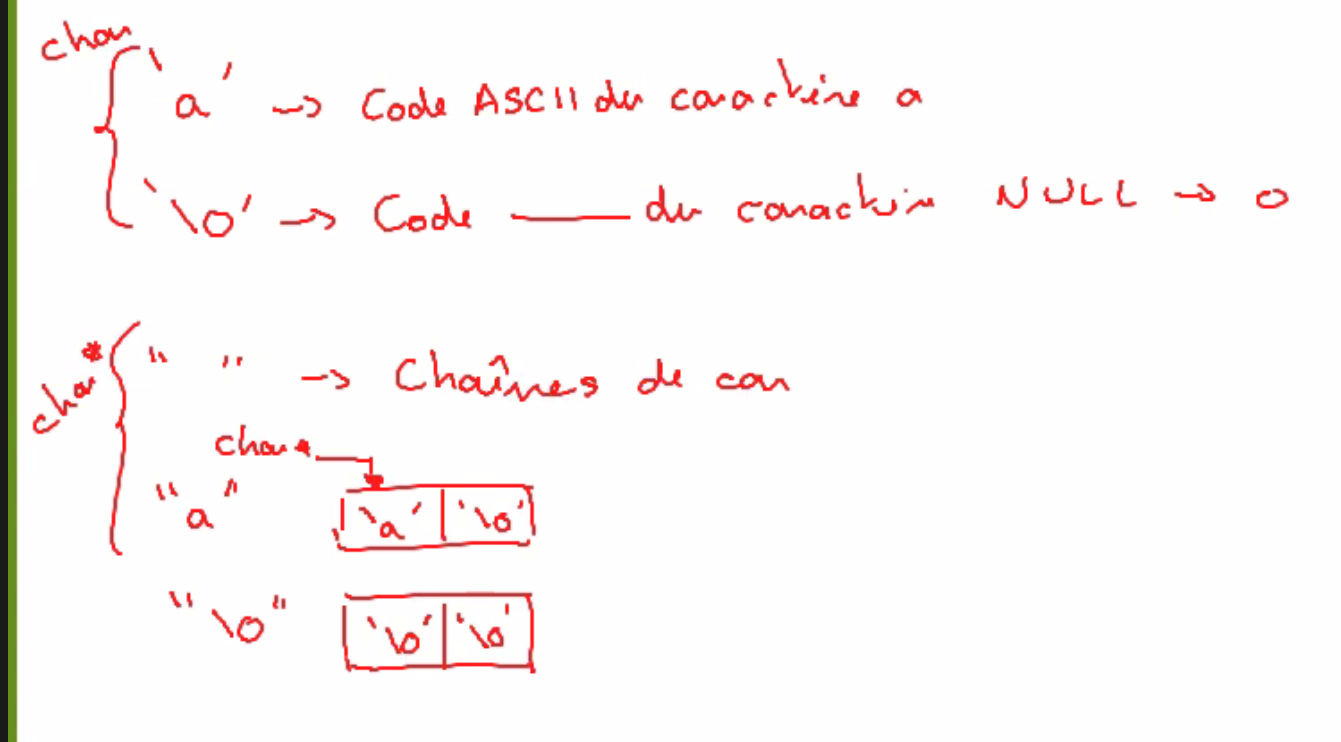 char
'a' → Code ASCII du caractère a
'\0' → Code —— du caractère NULL → 0
char*
" " → Chaînes de car
char*
"a" 'a' '\0'
"\0" '\0' '\0'